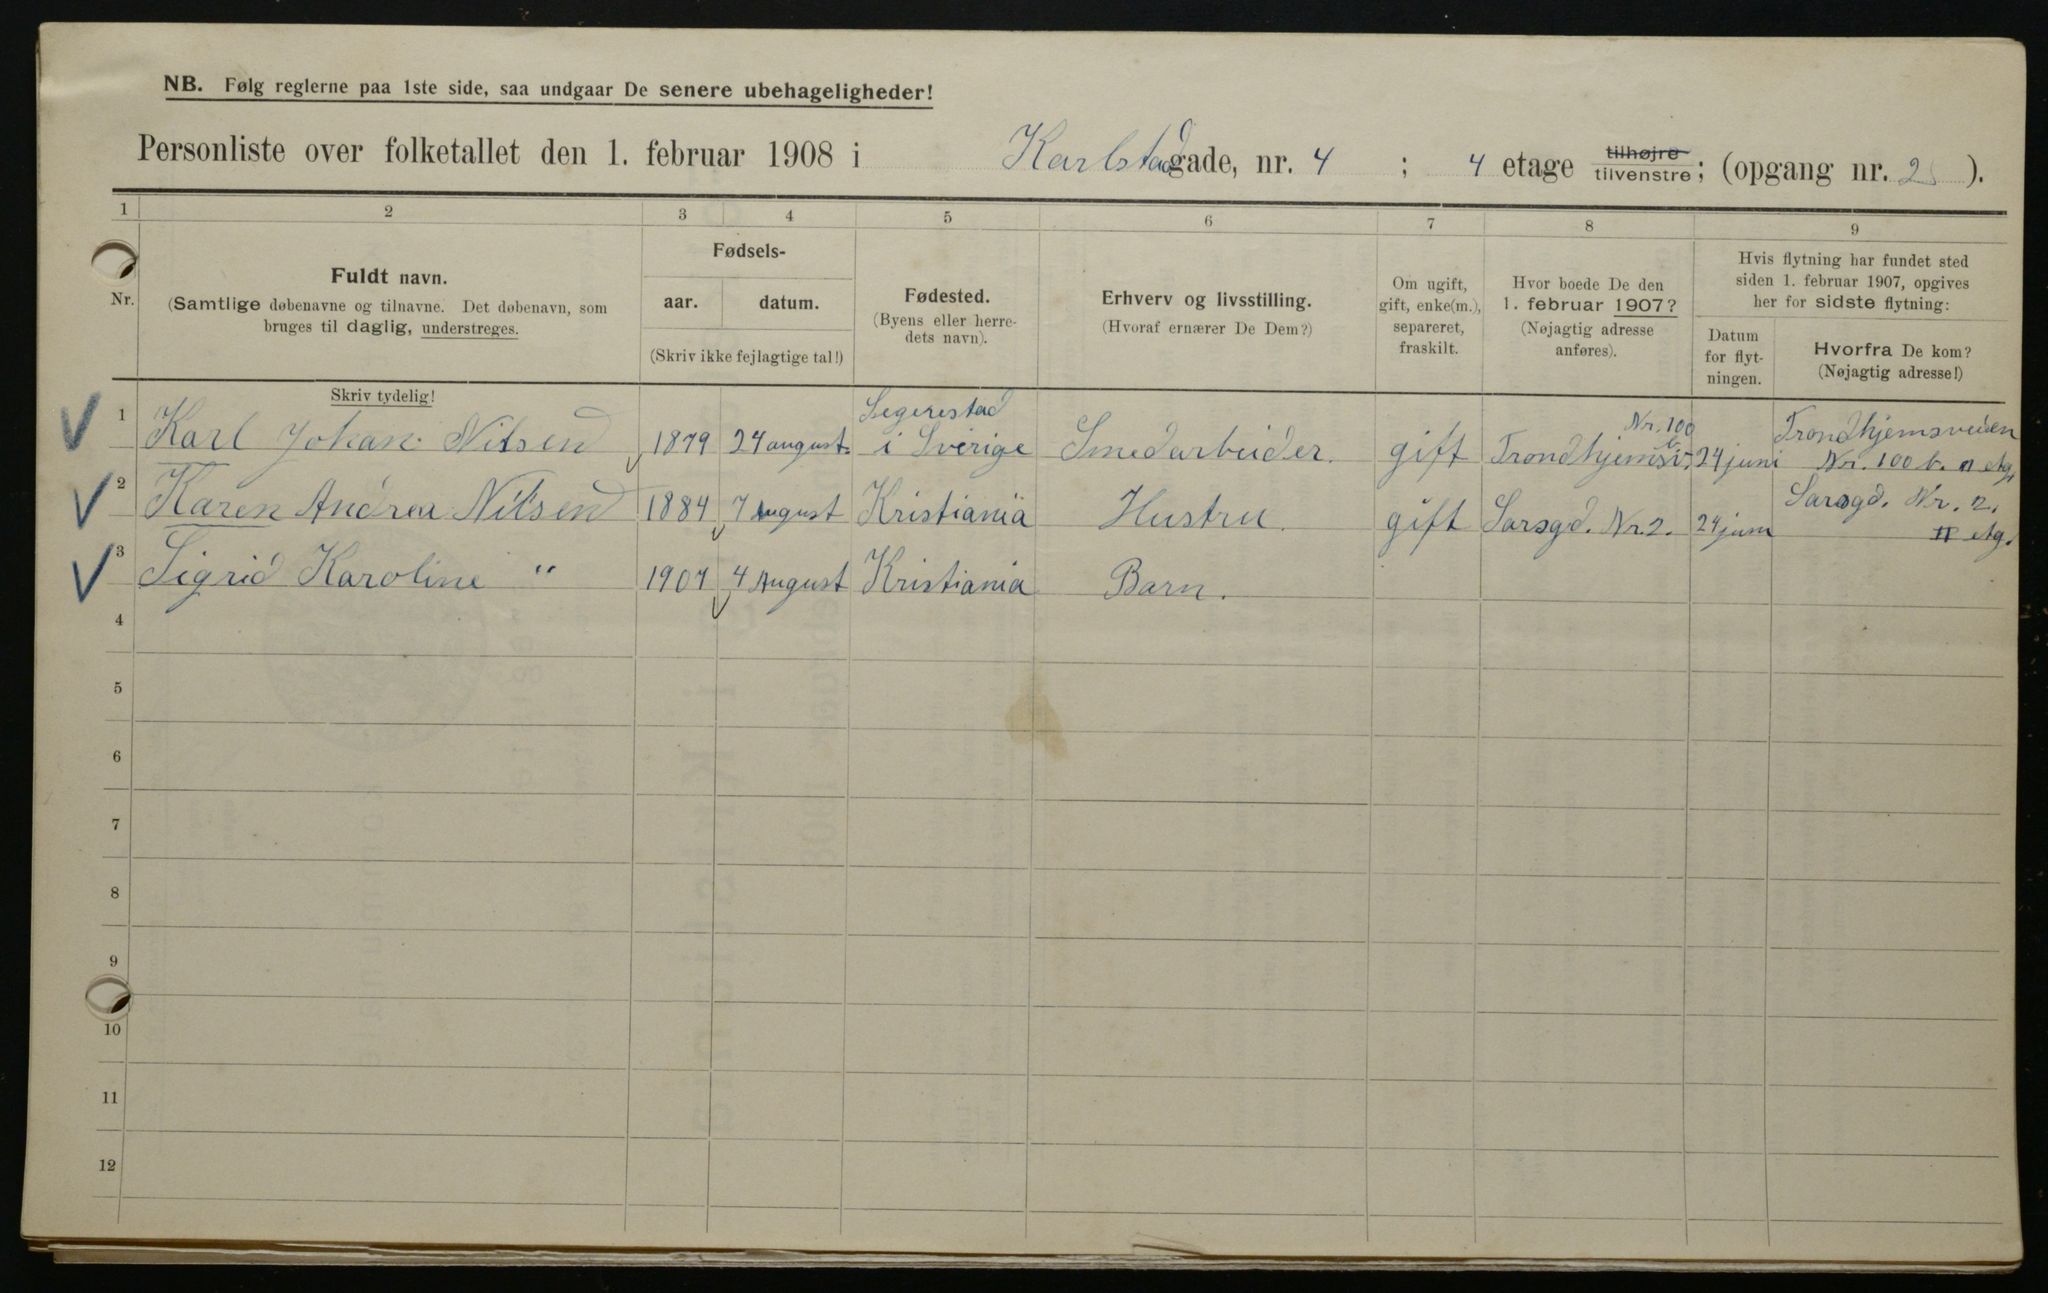 NB. Følg reglerne paa 1ste side, saa undgaar De senere ubehageligheder!
Personliste over folketallet den 1. februar 1908 i Karlstadgade, nr. 4 ; 4 etage tilhøjre tilvenstre; (opgang nr. 2 ).
1 2 3 4 5 6 7 8 9
Nr.
Fuldt navn.
(Samtlige døbenavne og tilnavne. Det døbenavn, som
bruges til daglig, understreges.
Fødsels-
aar. datum.
(Skriv ikke fejlagtige tal!)
Fødested.
(Byens eller herre-
dets navn).
Erhverv og livsstilling.
(Hvoraf ernærer De Dem?)
Om ugift,
gift, enke(m.),
separeret,
fraskilt.
Hvor boede De den
1. februar 1907?
(Nøjagtig adresse
anføres).
Hvis flytning har fundet sted
siden 1. februar 1907, opgives
her for sidste flytning:
Datum
for flyt-
ningen.
Hvorfra De kom?
(Nøjagtig adresse!)
Skriv tydelig!
1 Karl Johan Nilsen 1879 24 august. Segerestad i Sverige Smedarbeider. gift Trondhjemsv. Nr. 100 b. 24 juni Trondhjemsveien Nr. 100 b. II etg.
2 Karen Andrea Nilsen 1884 7 August Kristiania Hustru. gift Sarsgd. Nr. 2. 24 juni Sarsgd. Nr. 2. II etg.
3 Sigrid Karoline " 1907 4 August Kristiania Barn.
4
5
6
7
8
9
10
11
12